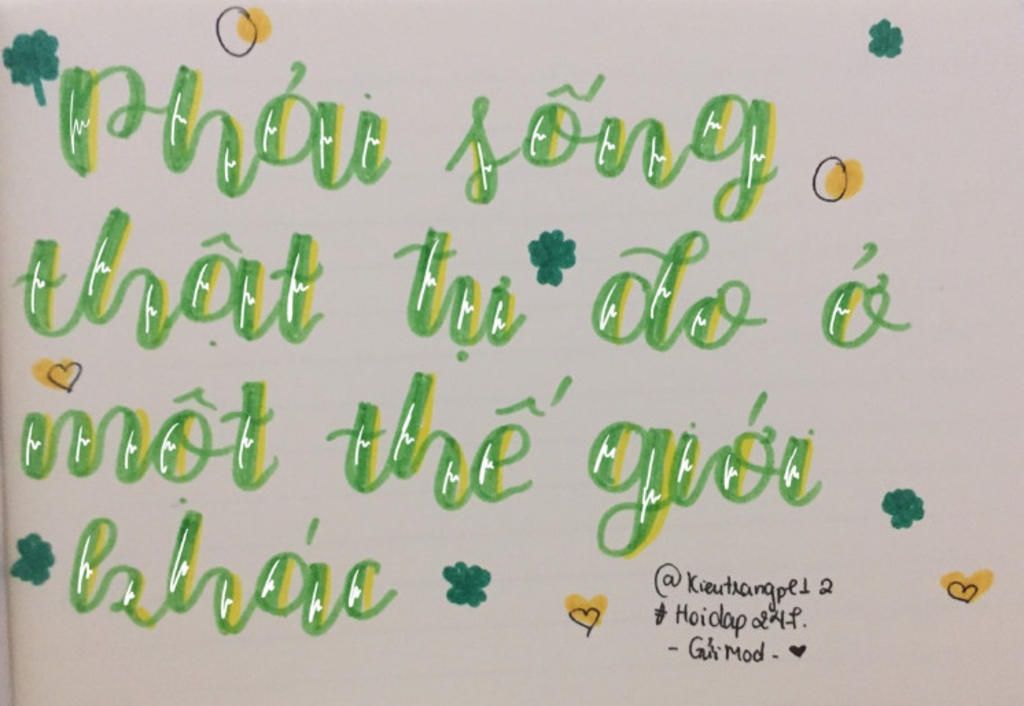 Phải sống
thật tự do ở
một thế giới
khác
@Kieutrangpe12
#Hoidap247.
- Gửi Mod - ♥